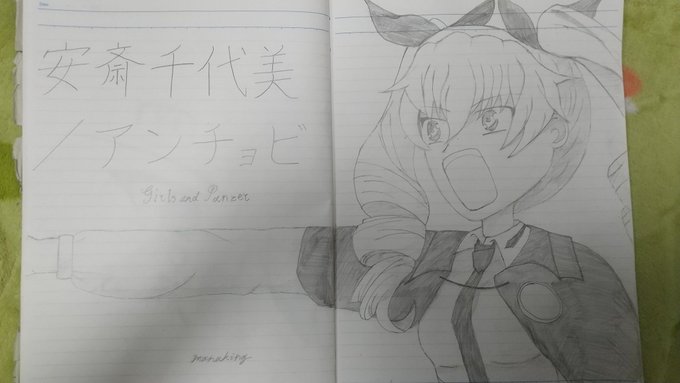 安斎千代美
/アンチョビ
Girls and Panzer
manaking